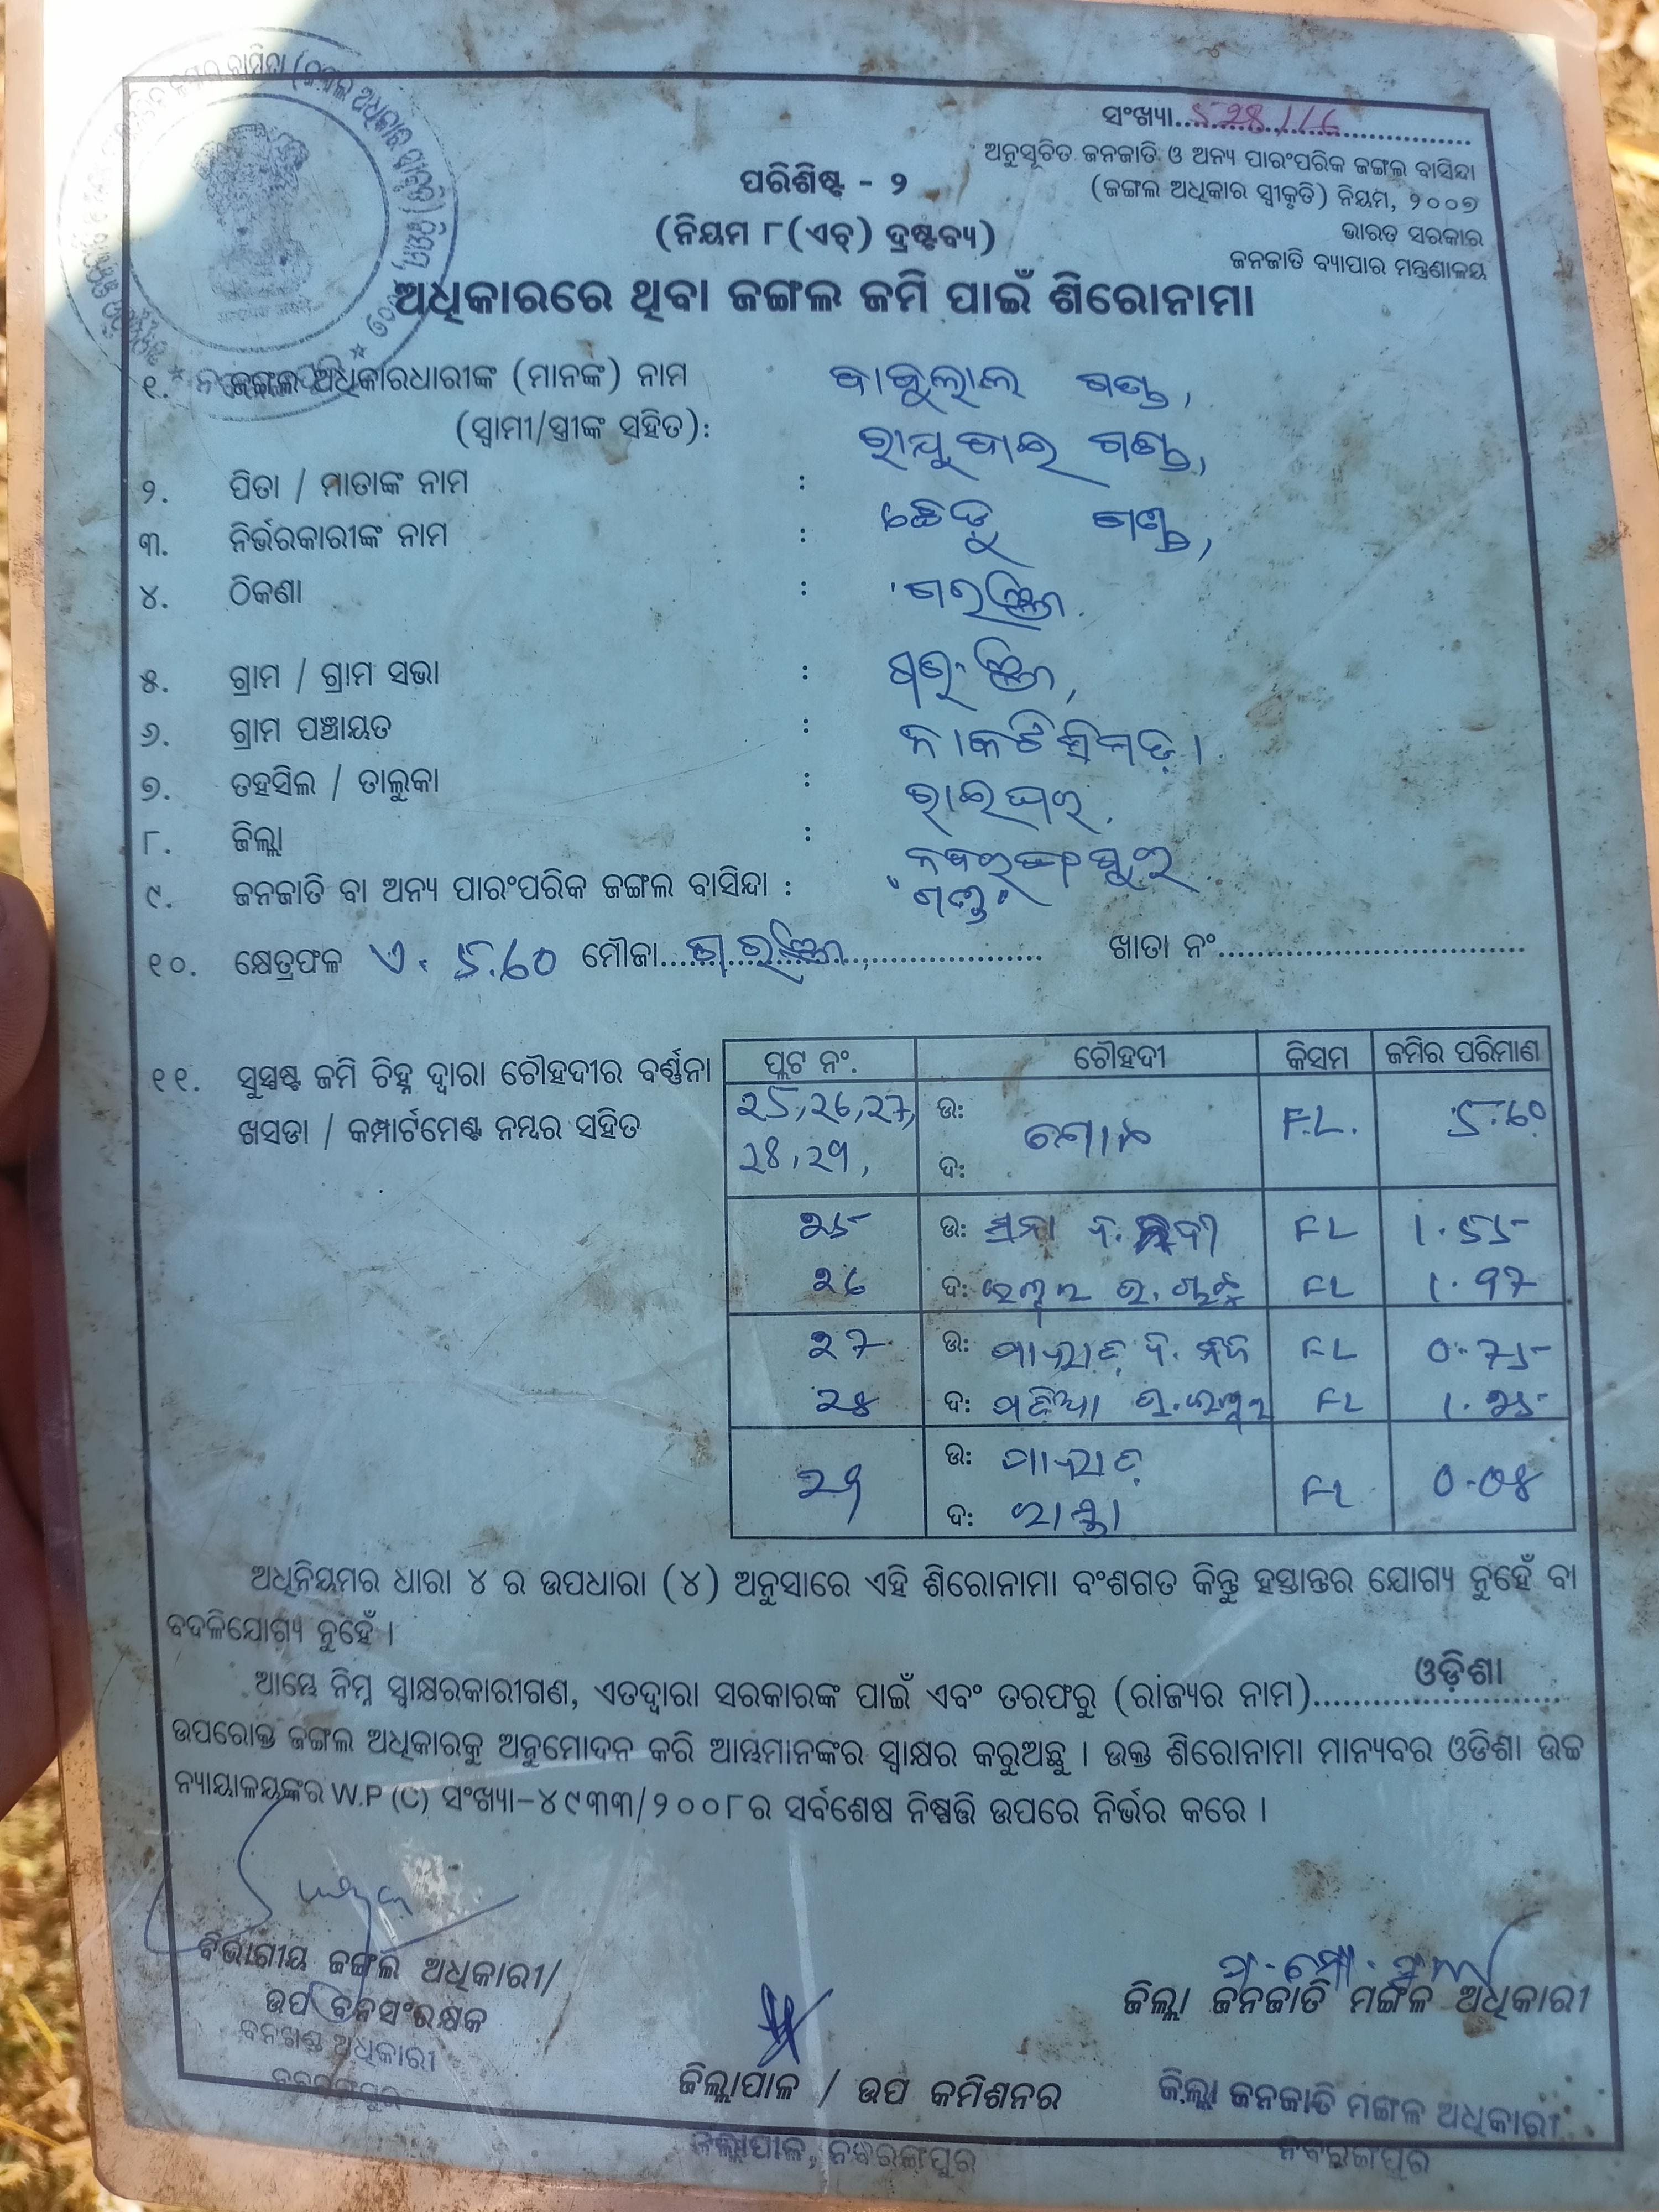 ସଂଖ୍ୟା
ଅନୁସୂଚିତ ଜନଜାତି ଓ ଅନ୍ୟ ପାରଂପରିକ ଜଙ୍ଗଲ ବାସିନ୍ଦା
(ଜଙ୍ଗଲ ଅଧିକାର ସ୍ୱୀକୃତି) ନିୟମ, ୨୦୦୭
ଭାରତ ସରକାର
ଜନଜାତି ବ୍ୟାପାର ମନ୍ତ୍ରଣାଳୟ
ପରିଶିଷ୍ଟ - ୨
(ନିୟମ ୮(ଏଚ୍) ଦ୍ରଷ୍ଟବ୍ୟ)
ଅଧିକାରରେ ଥିବା ଜଙ୍ଗଲ ଜମି ପାଇଁ ଶିରୋନାମା
୧. ଜଙ୍ଗଲ ଅଧିକାରଧାରୀଙ୍କ (ମାନଙ୍କ) ନାମ ବାବୁଲାଲ ଗଣ୍ଡ,
(ସ୍ୱାମୀ/ସ୍ତ୍ରୀଙ୍କ ସହିତ): ରାଯୁବାଇ ଗଣ୍ଡ,
୨. ପିତା / ମାତାଙ୍କ ନାମ : ଛେଡୁ ଗଣ୍ଡ,
୩. ନିର୍ଭରକାରୀଙ୍କ ନାମ :
୪. ଠିକଣା :
୫. ଗ୍ରାମ / ଗ୍ରାମ ସଭା :
୬. ଗ୍ରାମ ପଞ୍ଚାୟତ :
୭. ତହସିଲ / ତାଲୁକା : ରାଇଘର
୮. ଜିଲ୍ଲା : ନବରଙ୍ଗପୁର
୯. ଜନଜାତି ବା ଅନ୍ୟ ପାରଂପରିକ ଜଙ୍ଗଲ ବାସିନ୍ଦା : ଗଣ୍ଡ
୧୦. କ୍ଷେତ୍ରଫଳ ଏ. 5.60 ମୌଜା ଖାତା ନଂ
୧୧. ସୁସ୍ପଷ୍ଟ ଜମି ଚିହ୍ନ ଦ୍ୱାରା ଚୌହଦୀର ବର୍ଣ୍ଣନା
ଖସଡା / କମ୍ପାର୍ଟମେଣ୍ଟ ନମ୍ବର ସହିତ
ପ୍ଲଟ ନଂ. ଚୌହଦୀ କିସମ ଜମିର ପରିମାଣ
25,26,27, ଉ: F.L. 5.60
28,29, ଦ:
25 ଉ: FL 1.55
26 ଦ: FL 1.97
27 ଉ: FL 0.75
28 ଦ: FL 1.25
29 ଉ: FL 0.08
ଦ: ରାସ୍ତା
ଅଧିନିୟମର ଧାରା ୪ ର ଉପଧାରା (୪) ଅନୁସାରେ ଏହି ଶିରୋନାମା ବଂଶଗତ କିନ୍ତୁ ହସ୍ତାନ୍ତର ଯୋଗ୍ୟ ନୁହେଁ ବା
ବଦଳିଯୋଗ୍ୟ ନୁହେଁ ।
ଆମ୍ଭେ ନିମ୍ନ ସ୍ୱାକ୍ଷରକାରୀଗଣ, ଏତଦ୍ୱାରା ସରକାରଙ୍କ ପାଇଁ ଏବଂ ତରଫରୁ (ରାଜ୍ୟର ନାମ) ଓଡ଼ିଶା
ଉପରୋକ୍ତ ଜଙ୍ଗଲ ଅଧିକାରକୁ ଅନୁମୋଦନ କରି ଆମ୍ଭମାନଙ୍କର ସ୍ୱାକ୍ଷର କରୁଅଛୁ । ଉକ୍ତ ଶିରୋନାମା ମାନ୍ୟବର ଓଡିଶା ଉଚ୍ଚ
ନ୍ୟାୟାଳୟଙ୍କର W.P (C) ସଂଖ୍ୟା-୪୯୩୩/୨୦୦୮ର ସର୍ବଶେଷ ନିଷ୍ପତ୍ତି ଉପରେ ନିର୍ଭର କରେ ।
ବିଭାଗୀୟ ଜଙ୍ଗଲ ଅଧିକାରୀ/
ଉପ ବନସଂରକ୍ଷକ
ବନଖଣ୍ଡ ଅଧିକାରୀ
ନବରଙ୍ଗପୁର
ଜିଲ୍ଲାପାଳ / ଉପ କମିଶନର
ଜିଲ୍ଲାପାଳ, ନବରଙ୍ଗପୁର
ଜିଲ୍ଲା ଜନଜାତି ମଙ୍ଗଳ ଅଧିକାରୀ
ଜିଲ୍ଲା ଜନଜାତି ମଙ୍ଗଳ ଅଧିକାରୀ
ନବରଙ୍ଗପୁର